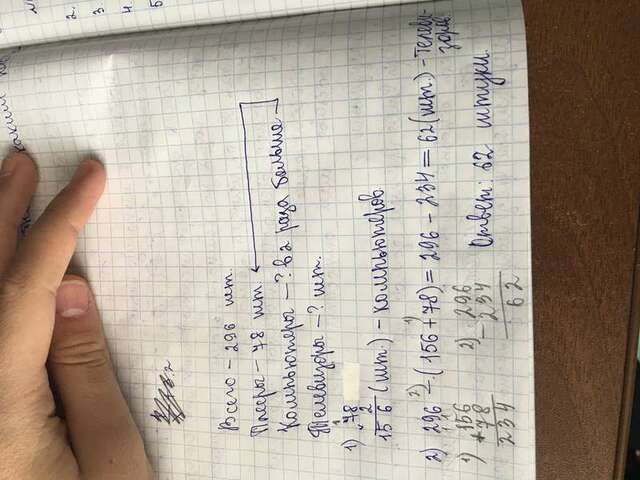 2.
3
4
5
Всего – 296 шт.
Плееры – 78 шт.
Компьютеры – ? в 2 раза больше
Телевизоры – ? шт.
1) 78
× 2
156 (шт.) – компьютеров
2) 296 – (156 + 78) = 296 – 234 = 62 (шт.) – телевизоров
1) 156
+ 78
234
2) 296
– 234
62
Ответ: 62 штуки.